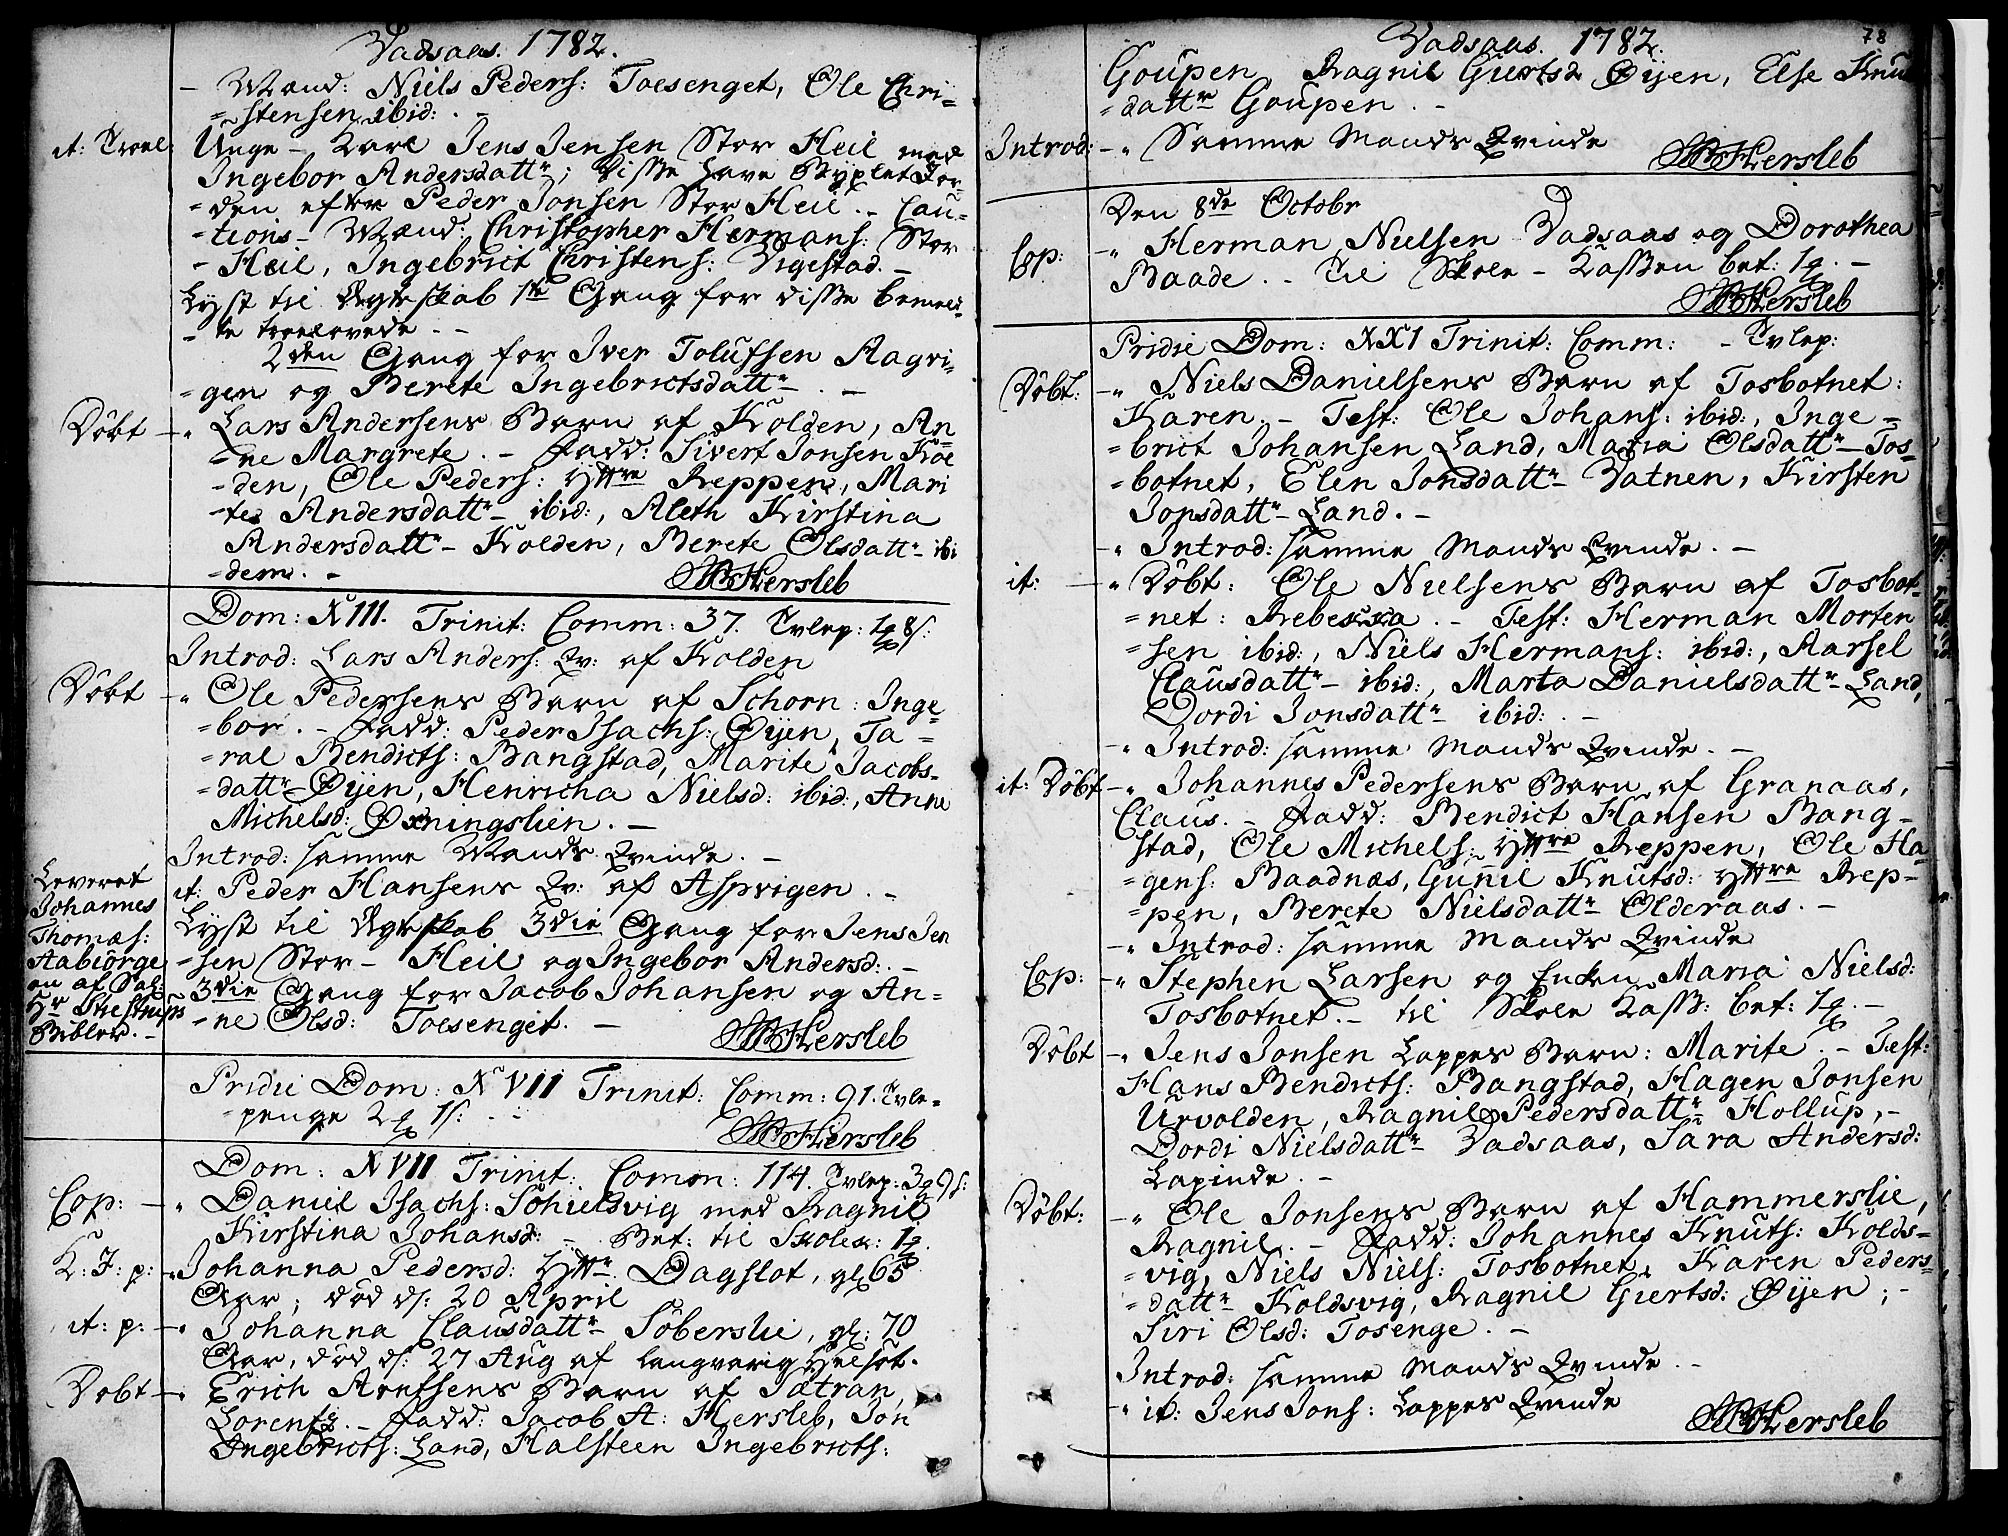 Vadsaas. 1782.
- Mænd: Niels Peders: Toesenget, Ole Chri=
=stensen ibid: . -
it: Troel: Unge - Karl Jens Jensen Stor Heil med
Ingebor Andersdattr; Disse have Byxlet Jor-
=den efter Peder Jonsen Stor Heil. - Cau-
=tions - Mænd: Christopher Hermans: Stor
- Heil, Ingebrict Christens: Vigestad. -
Lyst til Ægteskab 1te Gang for disse bemeld-
- te troelovede. - -
2den Gang for Iver Tolufsen Aagvi-
=gen og Berete Ingebrictsdattr - . -
Döbt -" Lars Andersens Barn af Kolden, An=
=ne Margrete. - Fadd: Sivert Jonsen Kol
-den, Ole Peders: Yttre Reppen, Mari
-tes Andersdattr - ibid:, Aleth Kirstina
Andersdattr - Kolden, Berete Olsdattr - ibi
=dem. - Hersleb
Dom: XIII. Trinit: Comm: 37. Tvlep: 1 8 s:
Introd: Lars Anders: Qv: af Kolden
Döbt -" Ole Pedersens Barn af Schorn: Inge=
=bor. - Fadd: Peder Isachs: Öijen, Ta=
=ral Bendicts: Bangstad, Marite Jacobs-
-dattr - Öijen, Henricha Nielsd: ibid:, Anne
Michelsd: Örningslien. -
Introd: samme Mands Qvinde. -
it: Peder Hansens Qv: af Aspvigen. -
Leveret
Johannes
Thomæs:
Aabiörge
en af Sal:
Hr Stestrups
Bibler. -
Lyst til Ægteskab 3die Gang for Jens Jen
=sen Stor - Heil og Ingebor Andersd: . -
3die Gang for Jacob Johansen og An=
=ne Olsd: Toesenget. - Hersleb
Pridie Dom: XVII Trinit: Comm: 91. Tvle=
=penge 2 1 s: . -
Hersleb
Dom: XVII Trinit: Comm: 114. Tvlep: 3 9 s:
Cop: -" Daniel Isachs: Sohielsvig med Ragnil
Kirstina Johansd: - Bet: til Skolek: 1
K: J: p: -" Johanna Pedersd: Yttr Dagslot, gl 65
Aar; död d: 20 April
it: p: -" Johanna Clausdattr - Söberslie, gl: 70
Aar, död d: 27 Aug af langvarig Helsot.
Döbt -" Erich Arntsens Barn af Sætran,
Lorents. - Fadd: Jacob A: Hersleb, Jon
Ingebricts: Land, Halsteen Ingebricts:
Vadsaas. 1782.
78
Goupen, Ragnil Giertsd Öijen, Else Knu
=dattr Goupen. -
Introd: -" Samme Mands Qvinde Hersleb
Den 8de Octobr
Cop: -" Herman Nielsen Vadsaas og Dorothea
Baade. - Til Skole - Kassen bet: 1. -
Hersleb
Pridie Dom: XXI Trinit: Comm: - Tvlep:
Döbt: -" Niels Danielsens Barn af Tosbotnet:
Karen. - Test: Ole Johans: ibid:, Inge=
=brict Johansen Land, Maria Olsdattr - Tos=
=botnet, Elen Jonsdattr - Vatnen, Kirsten
Jonsdattr - Land. -
-" Introd: samme Mands Qvinde. -
it: -" Döbt: Ole Nielsens Barn af Tosbot-
=net: Rebecka. - Test: Herman Morten
=sen ibid:, Niels Hermans: ibid:, Aarsel
Clausdattr - ibid:, Marta Danielsdattr - Land,
Dordi Jonsdattr - ibid: . -
-" Introd: samme Mands Qvinde. -
it: Döbt -" Johannes Pedersens Barn af Granaas,
Claus. - Fadd: Bendict Hansen Bang-
stad, Ole Michels: Yttre Reppen, Ole Ha-
=gens: Baadnæs, Guñil Knutsd: Yttre Rep-
=pen, Berete Nielsdattr - Olderaas. -
-" Introd: samme Mands Qvinde
Cop: -" Stephen Larsen og Enken Maria Nielsd:
Tosbotnet. - til Skole Kass: bet: 1. -
Döbt -" Jens Jonsen Lappes Barn: Marite. - Test:
Hans Bendicts: Bangstad, Hagen Jonsen
Urvolden, Ragnil Pedersdattr - Hollup, -
Dordi Nielsdattr - Vadsaas, Sara Andersd:
Lapinde. -
Döbt: -" Ole Jonsens Barn af Hammerslie,
Ragnil. - Fadd: Johannes Knuts: Kolds-
=vig, Niels Niels: Tosbotnet, Karen Peders=
=dattr - Koldsvig, Ragnil Giertsd: Öijen; -
Siri Olsd: Tosenge. -
Introd: samme Mands Qvinde. -
-" it: Jens Jons: Lappes Qvinde
Hersleb